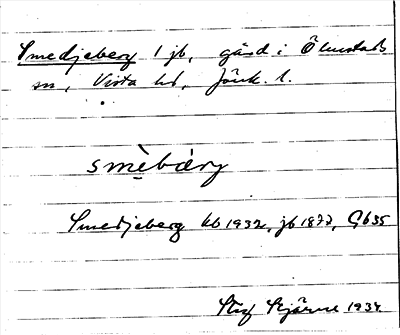 Smedjeberg 1 jb, gård i Ölmstads
sn, Vista hd, Jönk. l.
smèbærg
Smedjeberg kb 1932, jb 1877, Gb35
Stig Bjärme 1934.